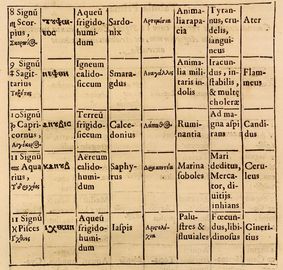 8 Signũ
♏ Scor-
pius,
Aqueũ
frigido-
humi-
dum
Sardo-
nix
Animali
a rapa-
cia
Tyran-
nus, cru-
delis, sã-
guineus
Ater
9 Signũ
♐ Sagit-
tarius
Τοξότης
Igneum
calido-
siccum
Smara-
gdus
Anima-
lia mili-
taris in-
dolis
Iracun-
dus, in-
stabilis,
& multę
cholerae
Flam-
meus
10 Signũ
♑ Capri-
cornus,
Terreũ
frigido-
siccum
Calce-
donius
Rumi-
nantia
Ad ma-
gna aspi
rans
Candi-
dus
11 Signũ
♒ Aqua-
rius,
Aëreum
calido-
humi-
dum
Saphy-
rus
Marina
soboles
Mari
deditus,
Merca-
tor, di-
uitijs
inhians
Ceru-
leus
Signũ
♓ Pisces
Aqueũ
frigido-
humi-
dum
Iaspis
Palu-
stres &
fluuiales
Foecun-
dus, libi-
dinosus
Cineri-
tius